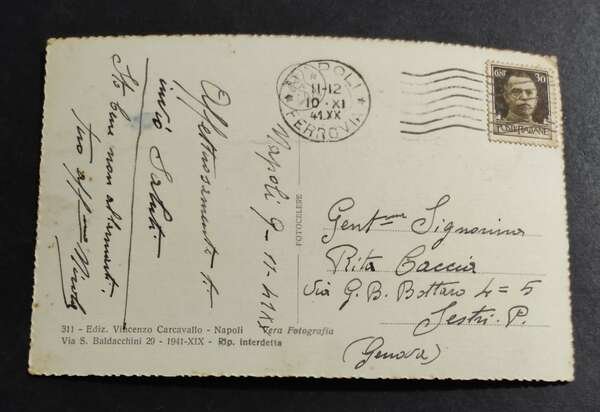 Napoli 9-11-41 XX
Affettuosamente t.
invio Saluti.
Sto bene non allarmarti.
tuo aff.mo
NAPOLI
11-12
10 . XI
41.XX
* FERROVIA *
CENT. 30
POSTE ITALIANE
Gent.me Signorina
Rita Caccia
Via G. B. Bottaro 4=5
Sestri. P.
(Genova)
FOTOCELERE
311 - Ediz. Vincenzo Carcavallo - Napoli Vera Fotografia
Via S. Baldacchini 29 - 1941-XIX - Rip. interdetta